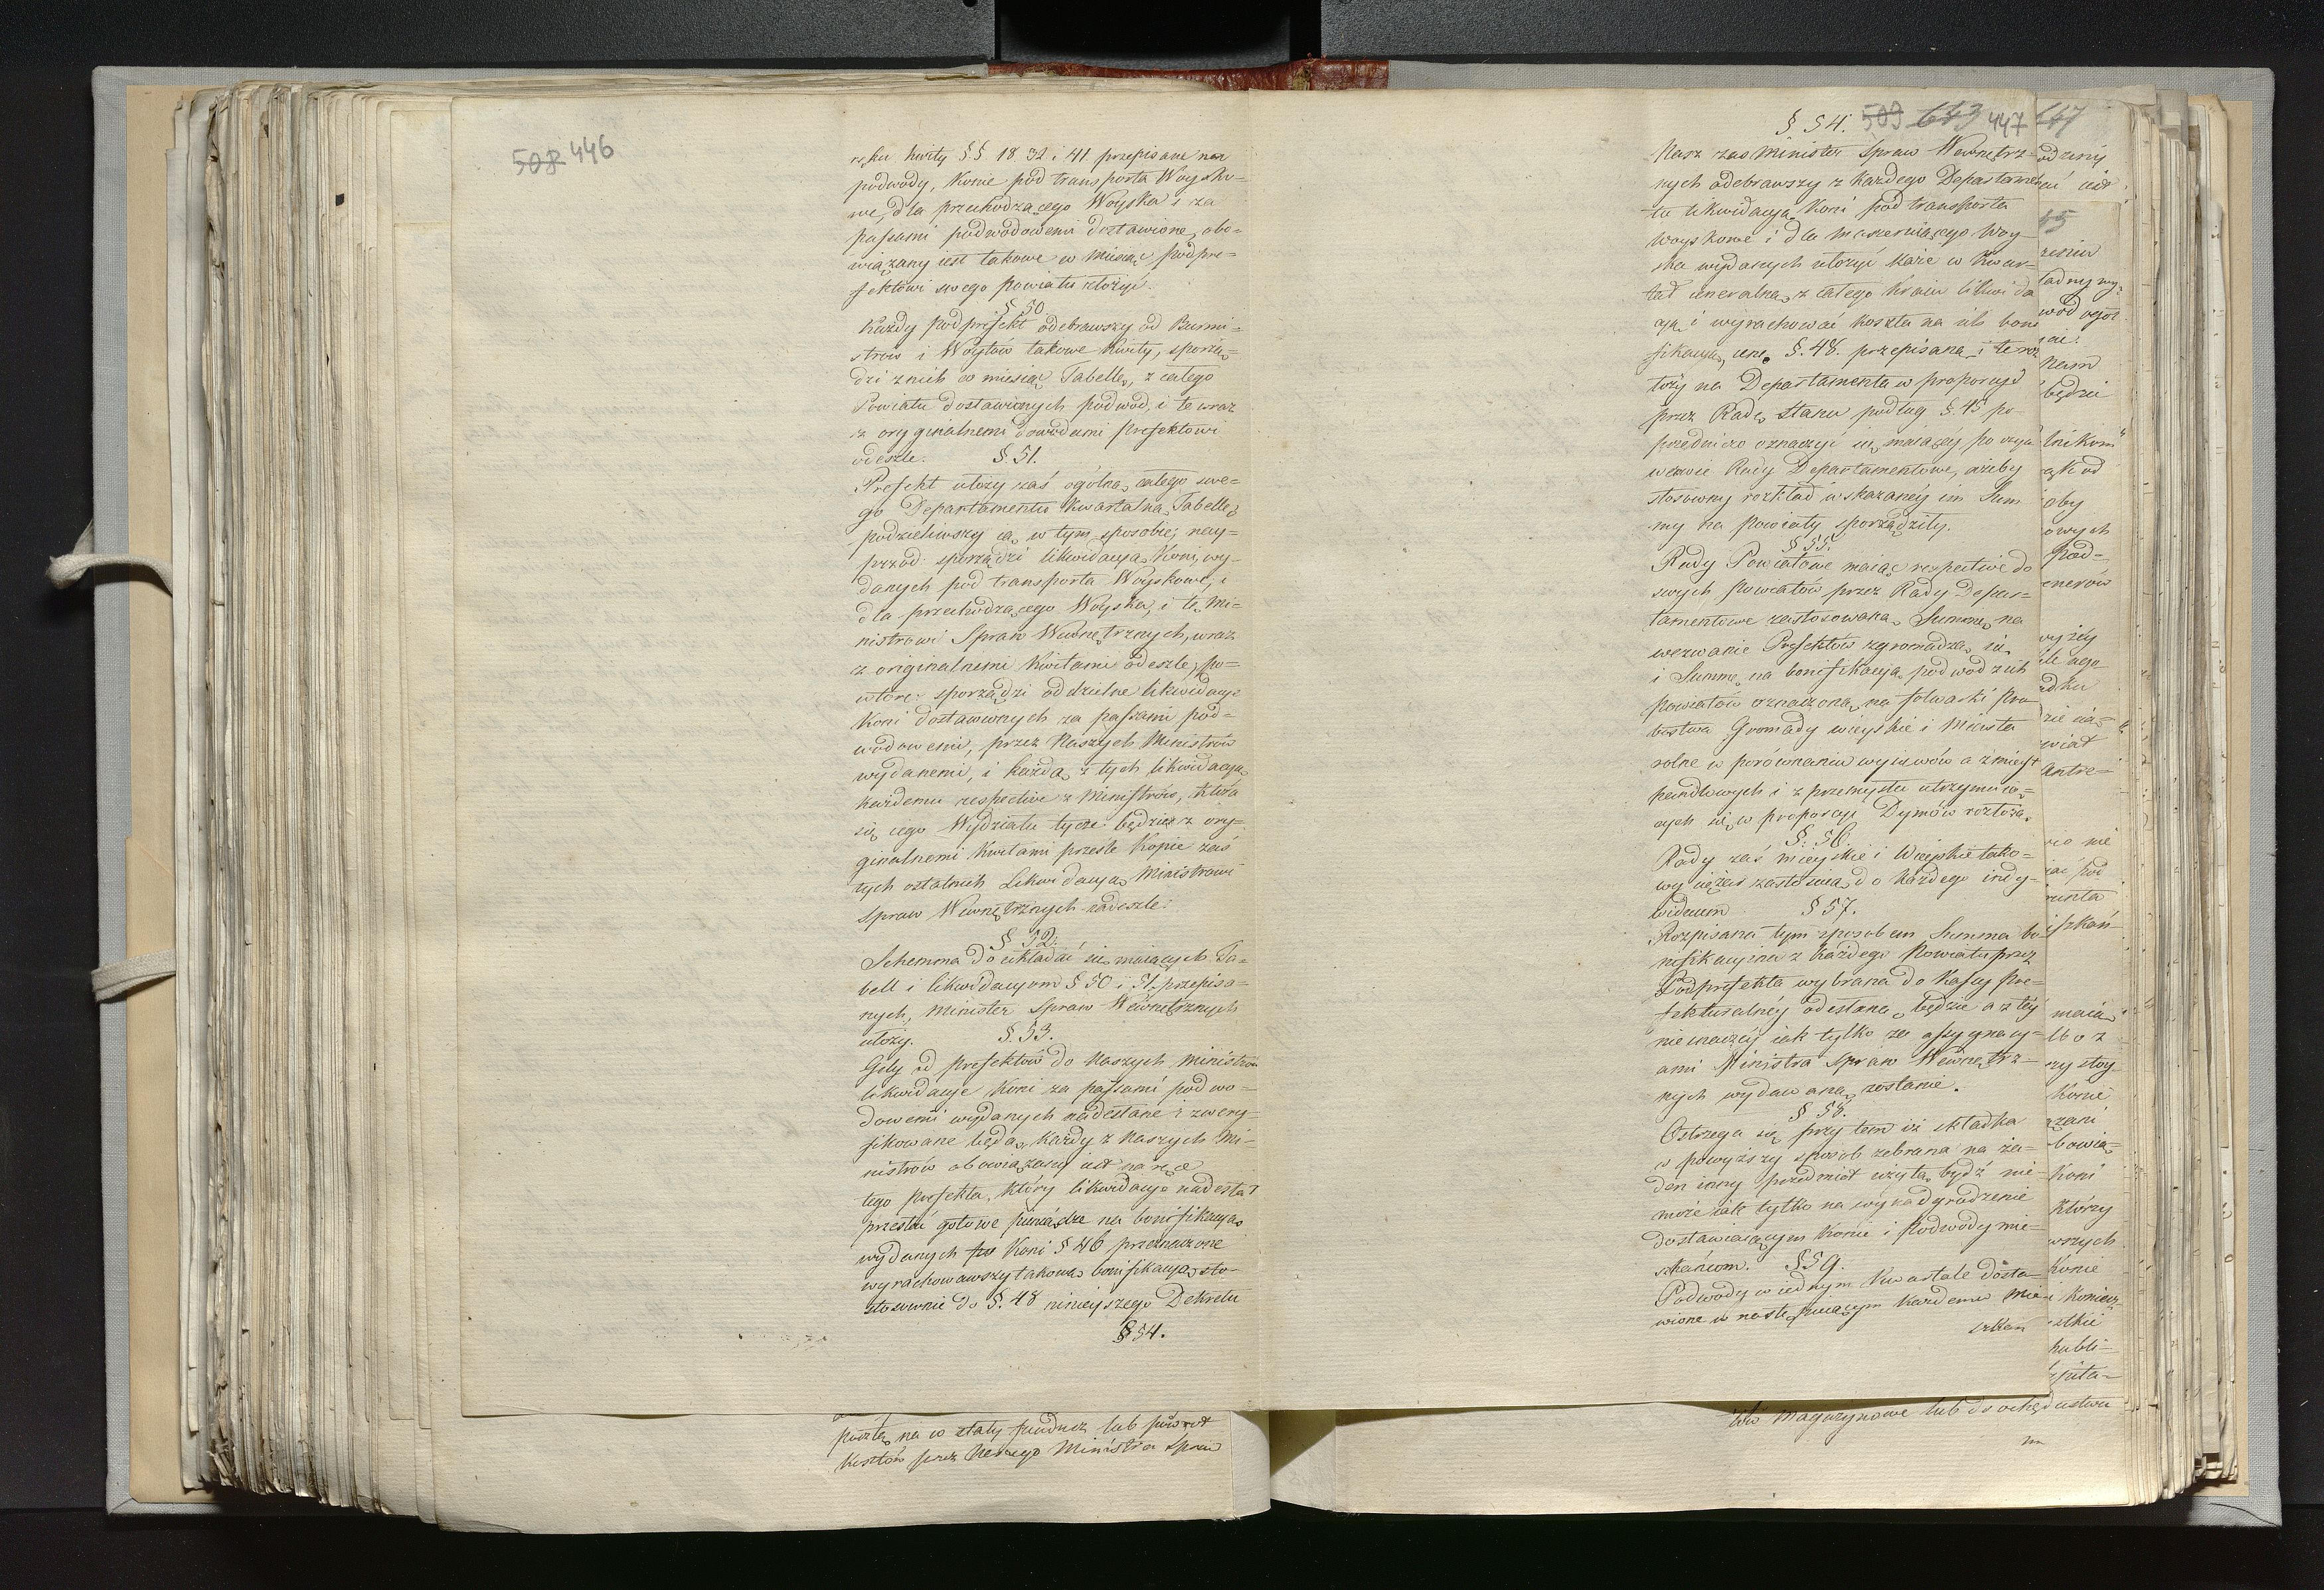 508 446
ręku kwity §§ 18 32 i 41 przepisane na
podwody, konie pod transporta Woysko-
we, dla przechodzącego Woyska i za
passami podwodowemi dostawione, obo-
wiązany iest takowe co miesiąc Podpre-
fektowi swego powiatu złożyć.
§ 50.
Każdy podprefekt odebrawszy od Burmi-
strzow i Woytów takowe kwity, sporzą-
dzi z nich co miesiąc Tabellę, z całego
Powiatu dostawionych podwod, i te wraz
z oryginalnemi dowodami Prefektowi
odeszle. §. 51.
Prefekt ułoży zaś ogólną całego swe-
go Departamentu kwartalną Tabellę,
podzieliwszy ią w tym sposobie; nay-
przod sporządzi likwidacyą Koni, wy-
danych pod transporta Woyskowe, i
dla przechodzącego Woyska, i tę Mi-
nistrowi Spraw Wewnętrznych, wraz
z originalnemi kwitami odeszle, po-
wtóre: sporządzi oddzielne likwidacye
Koni dostawionych za passami pod-
wodowemi, przez Naszych Ministrów
wydanemi, i każdą z tych likwidacyą
każdemu respective z Ministrów, która
się iego Wydziału tycze będzie z ory-
ginalnemi Kwitami prześle Kopie zaś
tych ostatnich Likwidacyą Ministrowi
Spraw Wewnętrznych nadeszle.
§ 52.
Schemma do układać się maiących Ta-
bell i likwidacyom § 50 i 51. przepisa-
nych, Minister Spraw Wewnętrznych
ułoży. §. 53.
Gdy od prefektów do Naszych Ministrów
likwidacye Koni za passami podwo-
dowemi wydanych nadesłane i zwery-
fikowane będą, każdy z Naszych Mi-
nistrów obowiązany iest na ręce
tego prefekta, który likwidacyę nadesłał
przesłać gotowe pieniądze na bonifikacyą
wydanych Koni § 46 przeznaczone
wyrachowawszy takową bonifikacyą sto-
stosownie do §. 48 ninieyszego Dekretu
§ 54.
pocztę na w stały fundusz lub powrot
kosztów przez Naszego Ministra Spraw
§ 54. 509 643 447
Nasz zas Minister Spraw Wewnętrz-
nych odebrawszy z każdego Departamen
tu likwidacyą Koni pod transporta
Woyskowe i dla maszeruiącego Woy-
ska wydanych ułożyć każe w kwar-
tał generalną z całego kraiu likwida
cyą i wyrachować koszta na ich boni
fikacyą, cenę §. 48. przepisaną i te roz
łoży na Departamenta w proporcyi
przez Radę Stanu podług §. 45 po-
przedniczo oznaczyć się maiącey, poczym
wezwie Rady Departamentowe, ażeby
stosowny rozkład wskazaney im Sum
my na powiaty sporządziły.
§ 55.
Rady Powiatowe maiąc respective do
swych powiatów przez Rady Depar-
tamentowe zastosowaną Summę na
wezwanie Prefektów zgromadzą się
i Summę na bonifikacyą podwod z ich
powiatów oznaczoną na folwarki Pro
bostwa Gromady wieyskie i Miasta
rolne w porównaniu wysiewów a z mieyst
handlowych i z przemysłu utrzymuią-
cych się w proporcyi Dymów rozłożą.
§. 56.
Rady zaś mieyskie i Wieyskie tako-
wy ciężar zastosuią do każdego indy-
widuum § 57.
Rozpisana tym sposobem Summa bo-
nifikacyina z każdego Powiatu przez
Podprefekta wybrana do Kassy Pre-
fekturalney odesłaną będzie a z tey
nie inaczey iak tylko za assygnacy-
ami Ministra Spraw Wewnętrz-
nych wydawaną zostanie.
§ 58.
Ostrzega się przy tem iż składka
w powyższy sposob zebrana na ża-
den inny przedmiot użytą bydź nie
może iak tylko na wynadgrodzenie
dostawiaiącym Konie i Podwody mie-
szkańcom. §59.
Podwody w iednym Kwartale dosta-
wione w następuiącym każdemu mie-
szkań
447
55
Nam
będzie
owych
wiat
maią
lbo z
Konie
Koni
którzy
wszych
Konie
tów magazynowe lub do ochędustwa